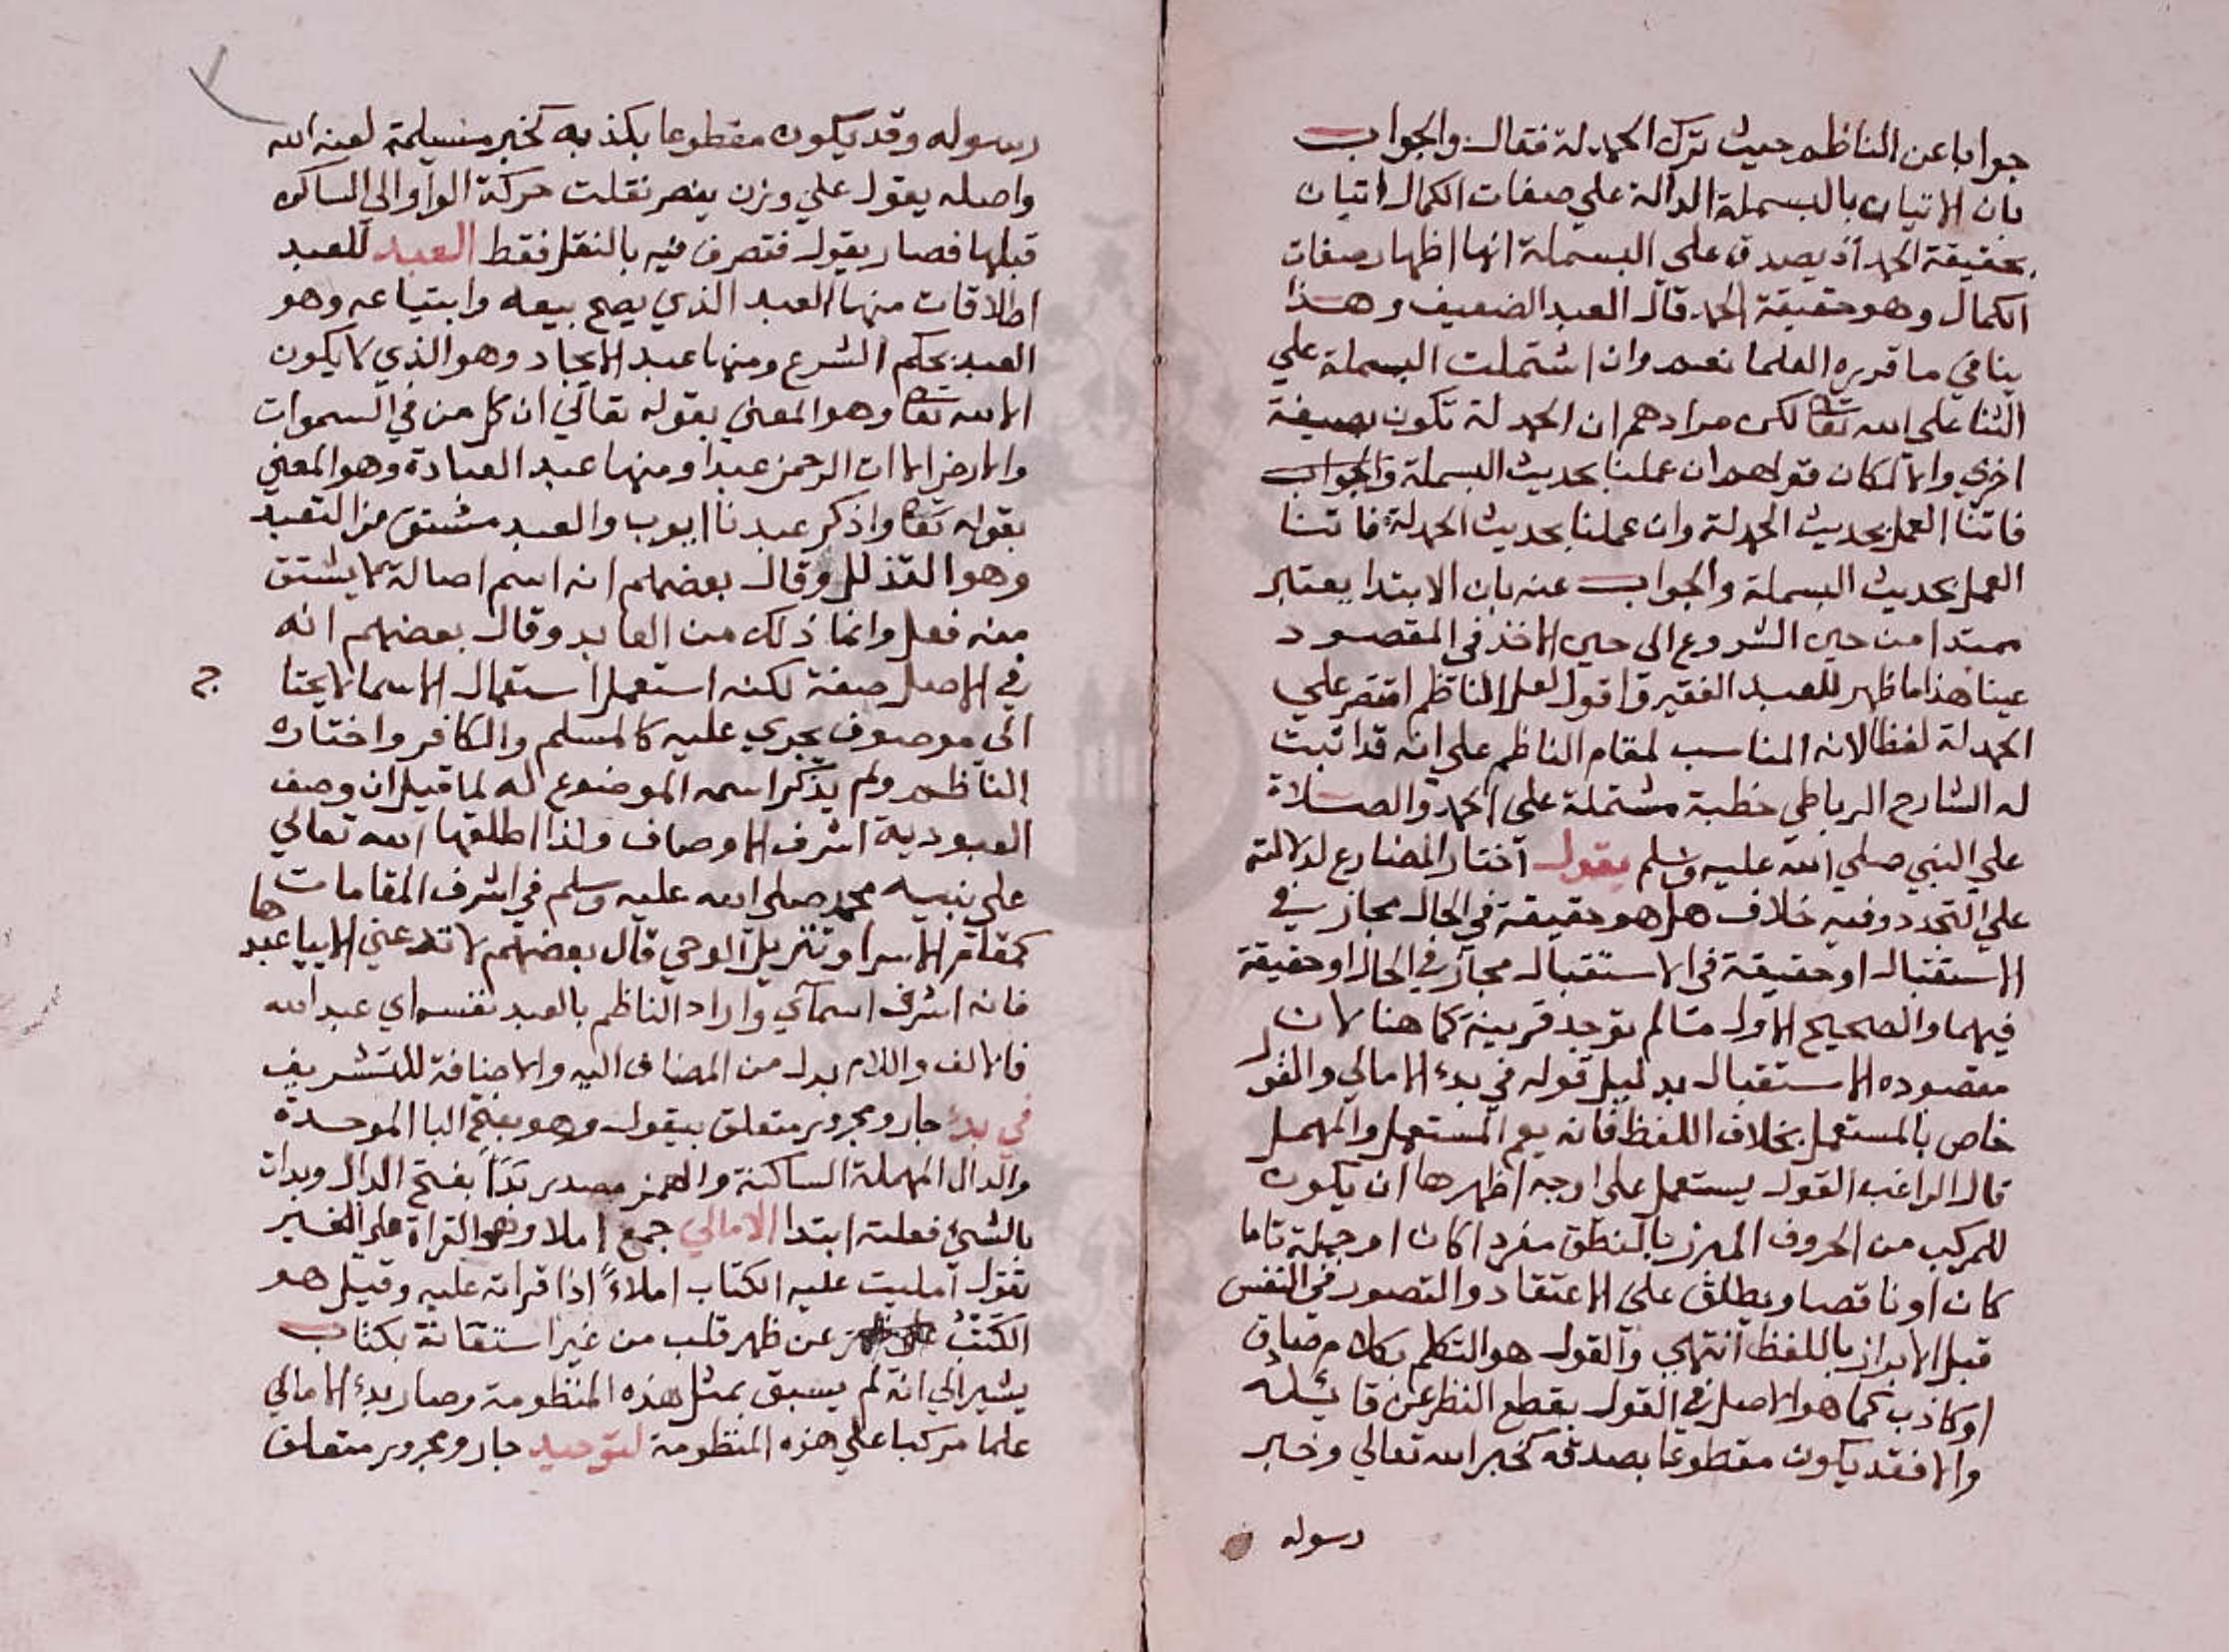 جوابا عن الناظم حيث ترك الحمدلة فقال والجواب
بان الاتيان بالبسملة الدالة علي صفات الكمال اتيان
بحقيقة الحمد اذ يصدق علي البسملة انها اظهار صفات
الكمال وهو حقيقة الحمد قال العبد الضعيف وهذا
ينافي ما قرره العلما نعم وان اشتملت البسملة علي
الثنا علي الله تعا لكن مرادهم ان الحمدلة تكون بصيغة
اخري والا لمكان قولهم ان عملنا بحديث البسملة والجواب
فاتنا العمل بحديث الحمدلة وان عملنا بحديث الحمدلة فاتنا
العمل بحديث البسملة والجواب عنه بان الابتدا يعتبر
ممتدا من حين الشروع الى حين الاخذ في المقصود
عينا هذا ما ظهر للعبد الفقير واقول لعل الناظم اقتصر علي
الحمدلة لفظا لانه المناسب لمقام الناظم علي انه قد اثبت
له الشارح الرباطي خطبة مشتملة علي الحمد والصلاة
علي النبي صلي الله عليه وسلم يقول اختار المضارع لدلالته
علي التجدد وفيه خلاف هل هو حقيقة في الحال مجاز في
الاستقبال او حقيقة في الاستقبال مجاز في الحال او حقيقة
فيهما والصحيح الاول مالم توجد قرينة كما هنا لان
مقصوده الاستقبال بدليل قوله في بدء الامالي والقول
خاص بالمستعمل بخلاف اللفظ فانه يعم المستعمل والمهمل
قال الراغب القول يستعمل علي اوجه اظهرها ان يكون
للمركب من الحروف المبرز بالنطق مفردا كان او جملة تاما
كان او ناقصا ويطلق علي الاعتقاد والتصور في النفس
قبل الابراز باللفظ انتهي والقول هو التكلم بكلام صادق
او كاذب كما هو الاصل في القول بقطع النظر عن قائله
والا فقد يكون مقطوعا بصدقه كخبر الله تعالي وخبر
رسوله
رسوله وقد يكون مقطوعا بكذبه كخبر مسيلمة لعنه الله
واصله يقول علي وزن ينصر نقلت حركة الواو الي الساكن
قبلها فصار يقول فتصرف فيه بالنقل فقط العبد للعبد
اطلاقات منها العبد الذي يصح بيعه وابتياعه وهو
العبد بحكم الشرع ومنها عبد الايجاد وهو الذي لا يكون
الا لله تعا وهو المعني بقوله تعالي ان كل من في السموات
والارض الا ات الرحمن عبدا ومنها عبد العبادة وهو المعني
بقوله تعا واذكر عبدنا ايوب والعبد مشتق من التعبد
وهو التذلل وقال بعضهم انه اسم اصالة كما يشتق
منه فعل وانما ذلك من العابد وقال بعضهم انه
في الاصل صفة لكنه استعمل استعمال الاسما لا يحتا
ج
الي موصوف يجري عليه كالمسلم والكافر واختاره
الناظم ولم يذكر اسمه الموضوع له لما قيل ان وصف
العبودية اشرف الاوصاف ولذا اطلقها الله تعالي
علي نبيه محمد صلي الله عليه وسلم في اشرف المقامات
كمقام الاسرا وتنزيل الوحي قال بعضهم لا تدعني الا بيا عبدها
فانه اشرف اسمآي واراد الناظم بالعبد نفسه اي عبد الله
فالالف واللام بدل من المضاف اليه والاضافة للتشريف
في بدء جار ومجرور متعلق بيقول وهو بفتح البا الموحدة
والدال المهملة الساكنة والهمز مصدر بَدَأَ بفتح الدال وبدات
بالشيئ فعلته ابتدا الامالي جمع املا وهو القراة علي الغير
تقول امليت عليه الكتاب املاءً اذا قراته عليه وقيل هو
الكَتْبُ عن ظهر قلب من غير استعانة بكتاب
يشير الي انه لم يسبق بمثل هذه المنظومة وصار بدء الامالي
علما مركبا علي هذه المنظومة لتوحيد جار ومجرور متعلق